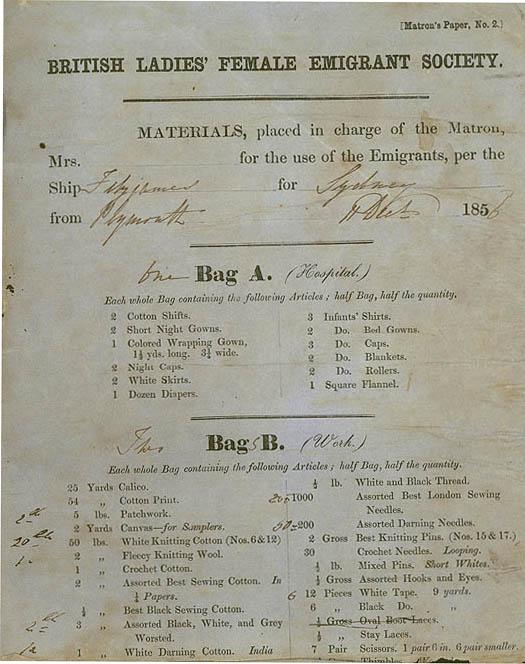 [Matron's Paper, No. 2.]
BRITISH LADIES' FEMALE EMIGRANT SOCIETY.
MATERIALS, placed in charge of the Matron,
Mrs. for the use of the Emigrants, per the
Ship Fitzjames for Sydney
from Plymouth Dec 1856
One Bag A. (Hospital.)
Each whole Bag containing the following Articles; half Bag, half the quantity.
2 Cotton Shifts.
2 Short Night Gowns.
1 Colored Wrapping Gown,
1½ yds. long. 3¾ wide.
2 Night Caps.
2 White Skirts.
1 Dozen Diapers.
3 Infants' Shirts.
2 Do. Bed Gowns.
3 Do. Caps.
2 Do. Blankets.
2 Do. Rollers.
1 Square Flannel.
Two Bags B. (Work.)
Each whole Bag containing the following Articles; half Bag, half the quantity.
25 Yards Calico.
54 „ Cotton Print.
5 lbs. Patchwork.
2 Yards Canvas—for Samplers.
50 lbs. White Knitting Cotton (Nos. 6 & 12)
2 „ Fleecy Knitting Wool.
1 „ Crochet Cotton.
2 „ Assorted Best Sewing Cotton. In
¼ Papers.
½ „ Best Black Sewing Cotton.
3 „ Assorted Black, White, and Grey
Worsted.
1 „ White Darning Cotton. India
½ lb. White and Black Thread.
1000 Assorted Best London Sewing
Needles.
200 Assorted Darning Needles.
2 Gross Best Knitting Pins. (Nos. 15 & 17.)
30 Crochet Needles. Looping.
½ lb. Mixed Pins. Short Whites.
½ Gross Assorted Hooks and Eyes.
6 12 Pieces White Tape. 9 yards.
6 „ Black Do. „
½ Gross Oval Boot Laces.
½ „ Stay Laces.
7 Pair Scissors. 1 pair 6 in. 6 pair smaller.